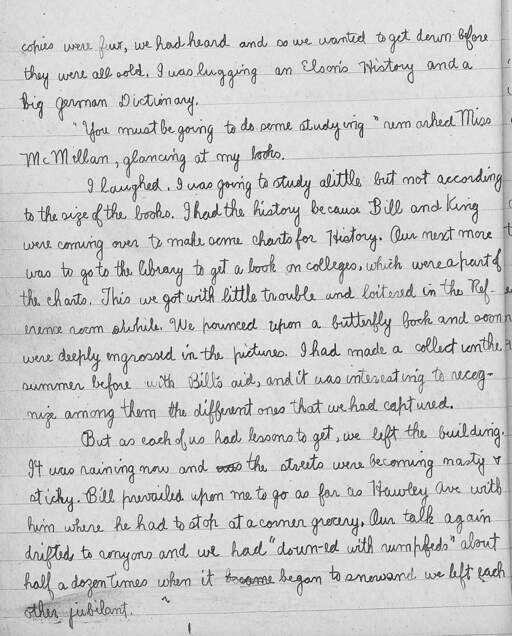 copies were few, we had heard and so we wanted to get down before
they were all sold. I was lugging an Elson's History and a
big german Dictionary.
"You must be going to do some studying" remarked Miss
McMillan, glancing at my books.
I laughed. I was going to study alittle but not according
to the size of the books. I had the history because Bill and King
were coming over to make some charts for History. Our next move
was to go to the library to get a book on colleges, which were a part of
the charts. This we got with little trouble and loitered in the Ref-
erence room awhile. We pounced upon a butterfly book and soon
were deeply engrossed in the pictures. I had made a collection the
summer before with Bill's aid, and it was interesting to recog-
nize among them the different ones that we had captured.
But as each of us had lessons to get, we left the building.
It was raining now and was the streets were becoming nasty &
sticky. Bill prevailed upon me to go as far as Hawley Ave with
him where he had to stop at a corner grocery. Our talk again
drifted to and we had "down-ed with" about
half a dozen times when it became began to snow and we left each
other jubilant.